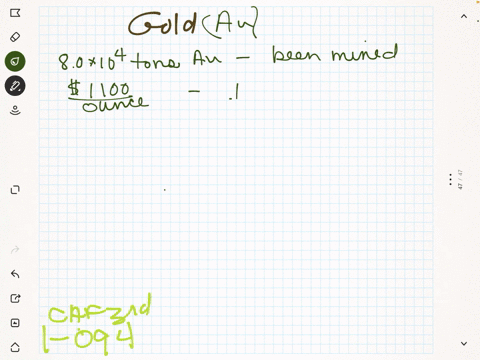 Gold (Au)
8.0×10⁴ tons Au – been mined
$1100 – .1
ounce
CAF 3rd
1-094
47 / 47